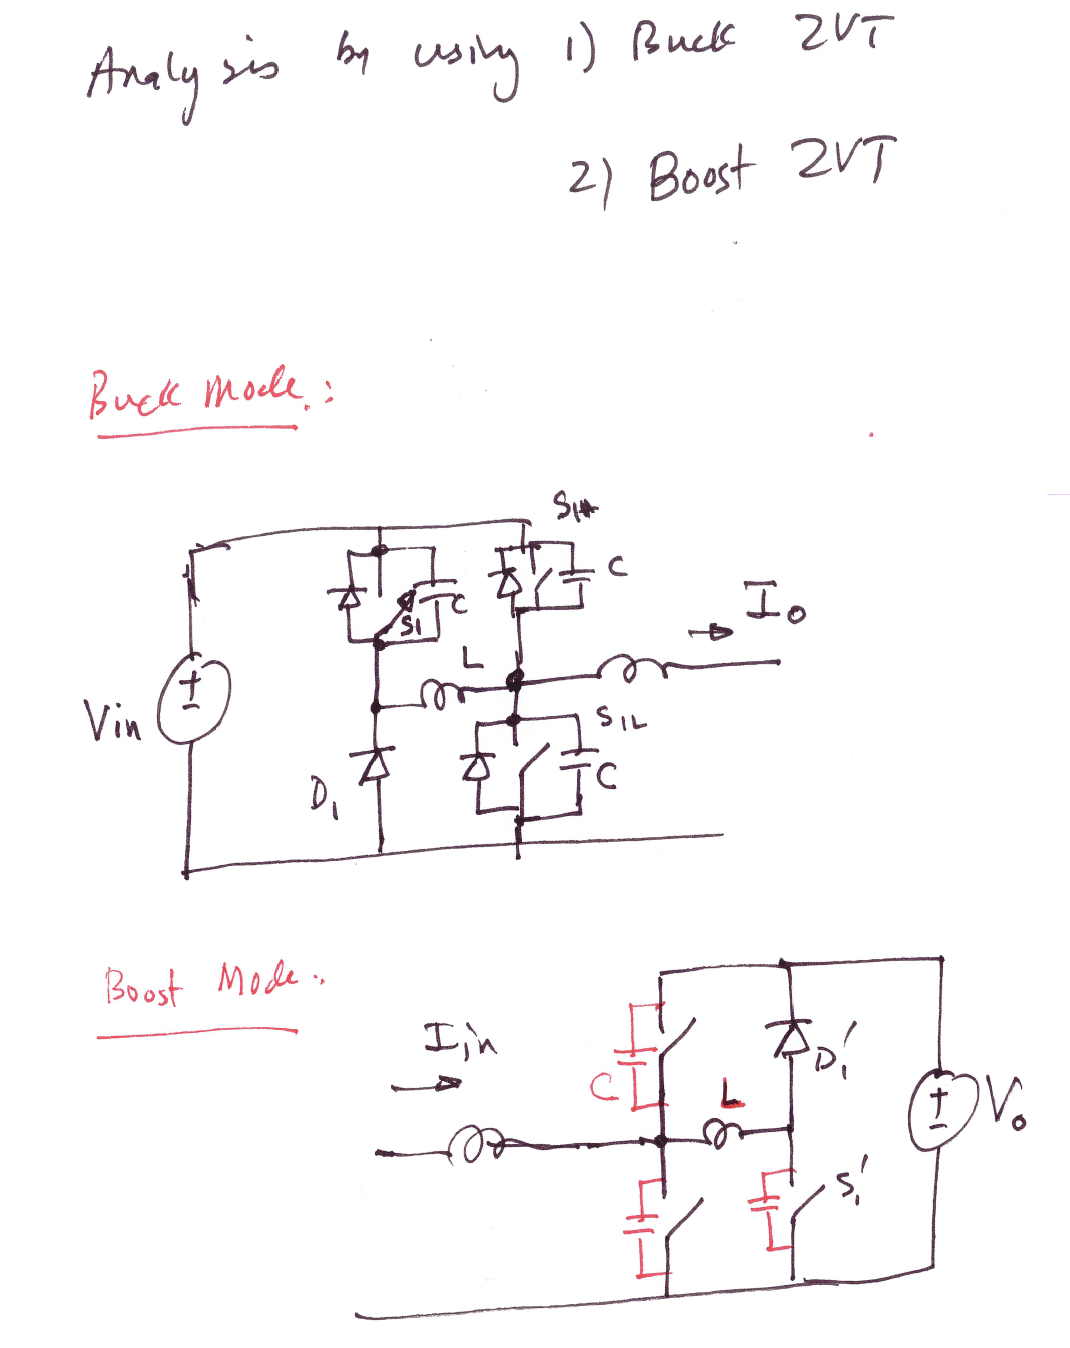 Analysis by using 1) Buck ZVT
2) Boost ZVT
Buck Mode:
S1H
C
C
S1
Io
L
Vin
S1L
C
D1
Boost Mode:
Iin
D1'
C
L
Vo
S1'